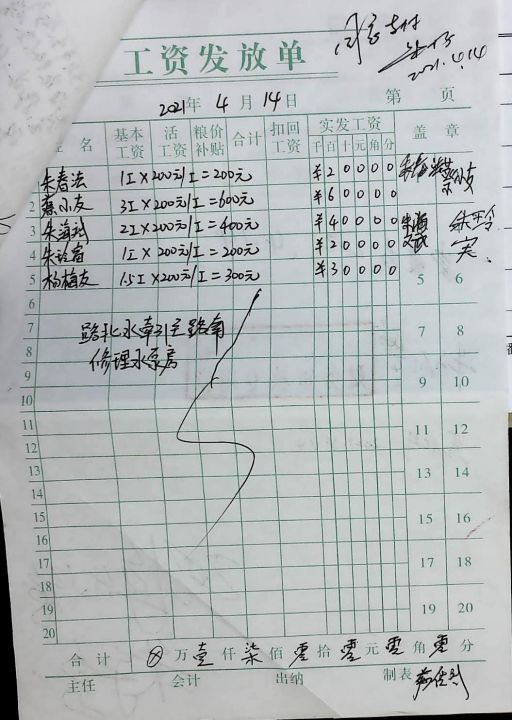 同意支付
2021.4.14
工资发放单
2021年 4 月 14日 第 页
姓 名 基本工资 活工资 粮价补贴 合计 扣回工资 实发工资 千百十元角分 盖 章
朱春法 1工×200元/工=200元 ¥20000
2 小友 3工×200元/工=600元 ¥60000
3 朱海 2工×200元/工=400元 ¥40000
4 朱 1工×200元/工=200元 ¥20000
5 杨梅友 1.5工×200元/工=300元 ¥30000 5 6
6
7 路北水牵引至路南 7 8
8 修理水泵房
9 9 10
10
11 11 12
12
13 13 14
14
15 15 16
16
17 17 18
18
19 19 20
20
合 计 ⊗ 万 壹 仟 柒 佰 零 拾 零 元 零 角 零 分
主任 会计 出纳 制表